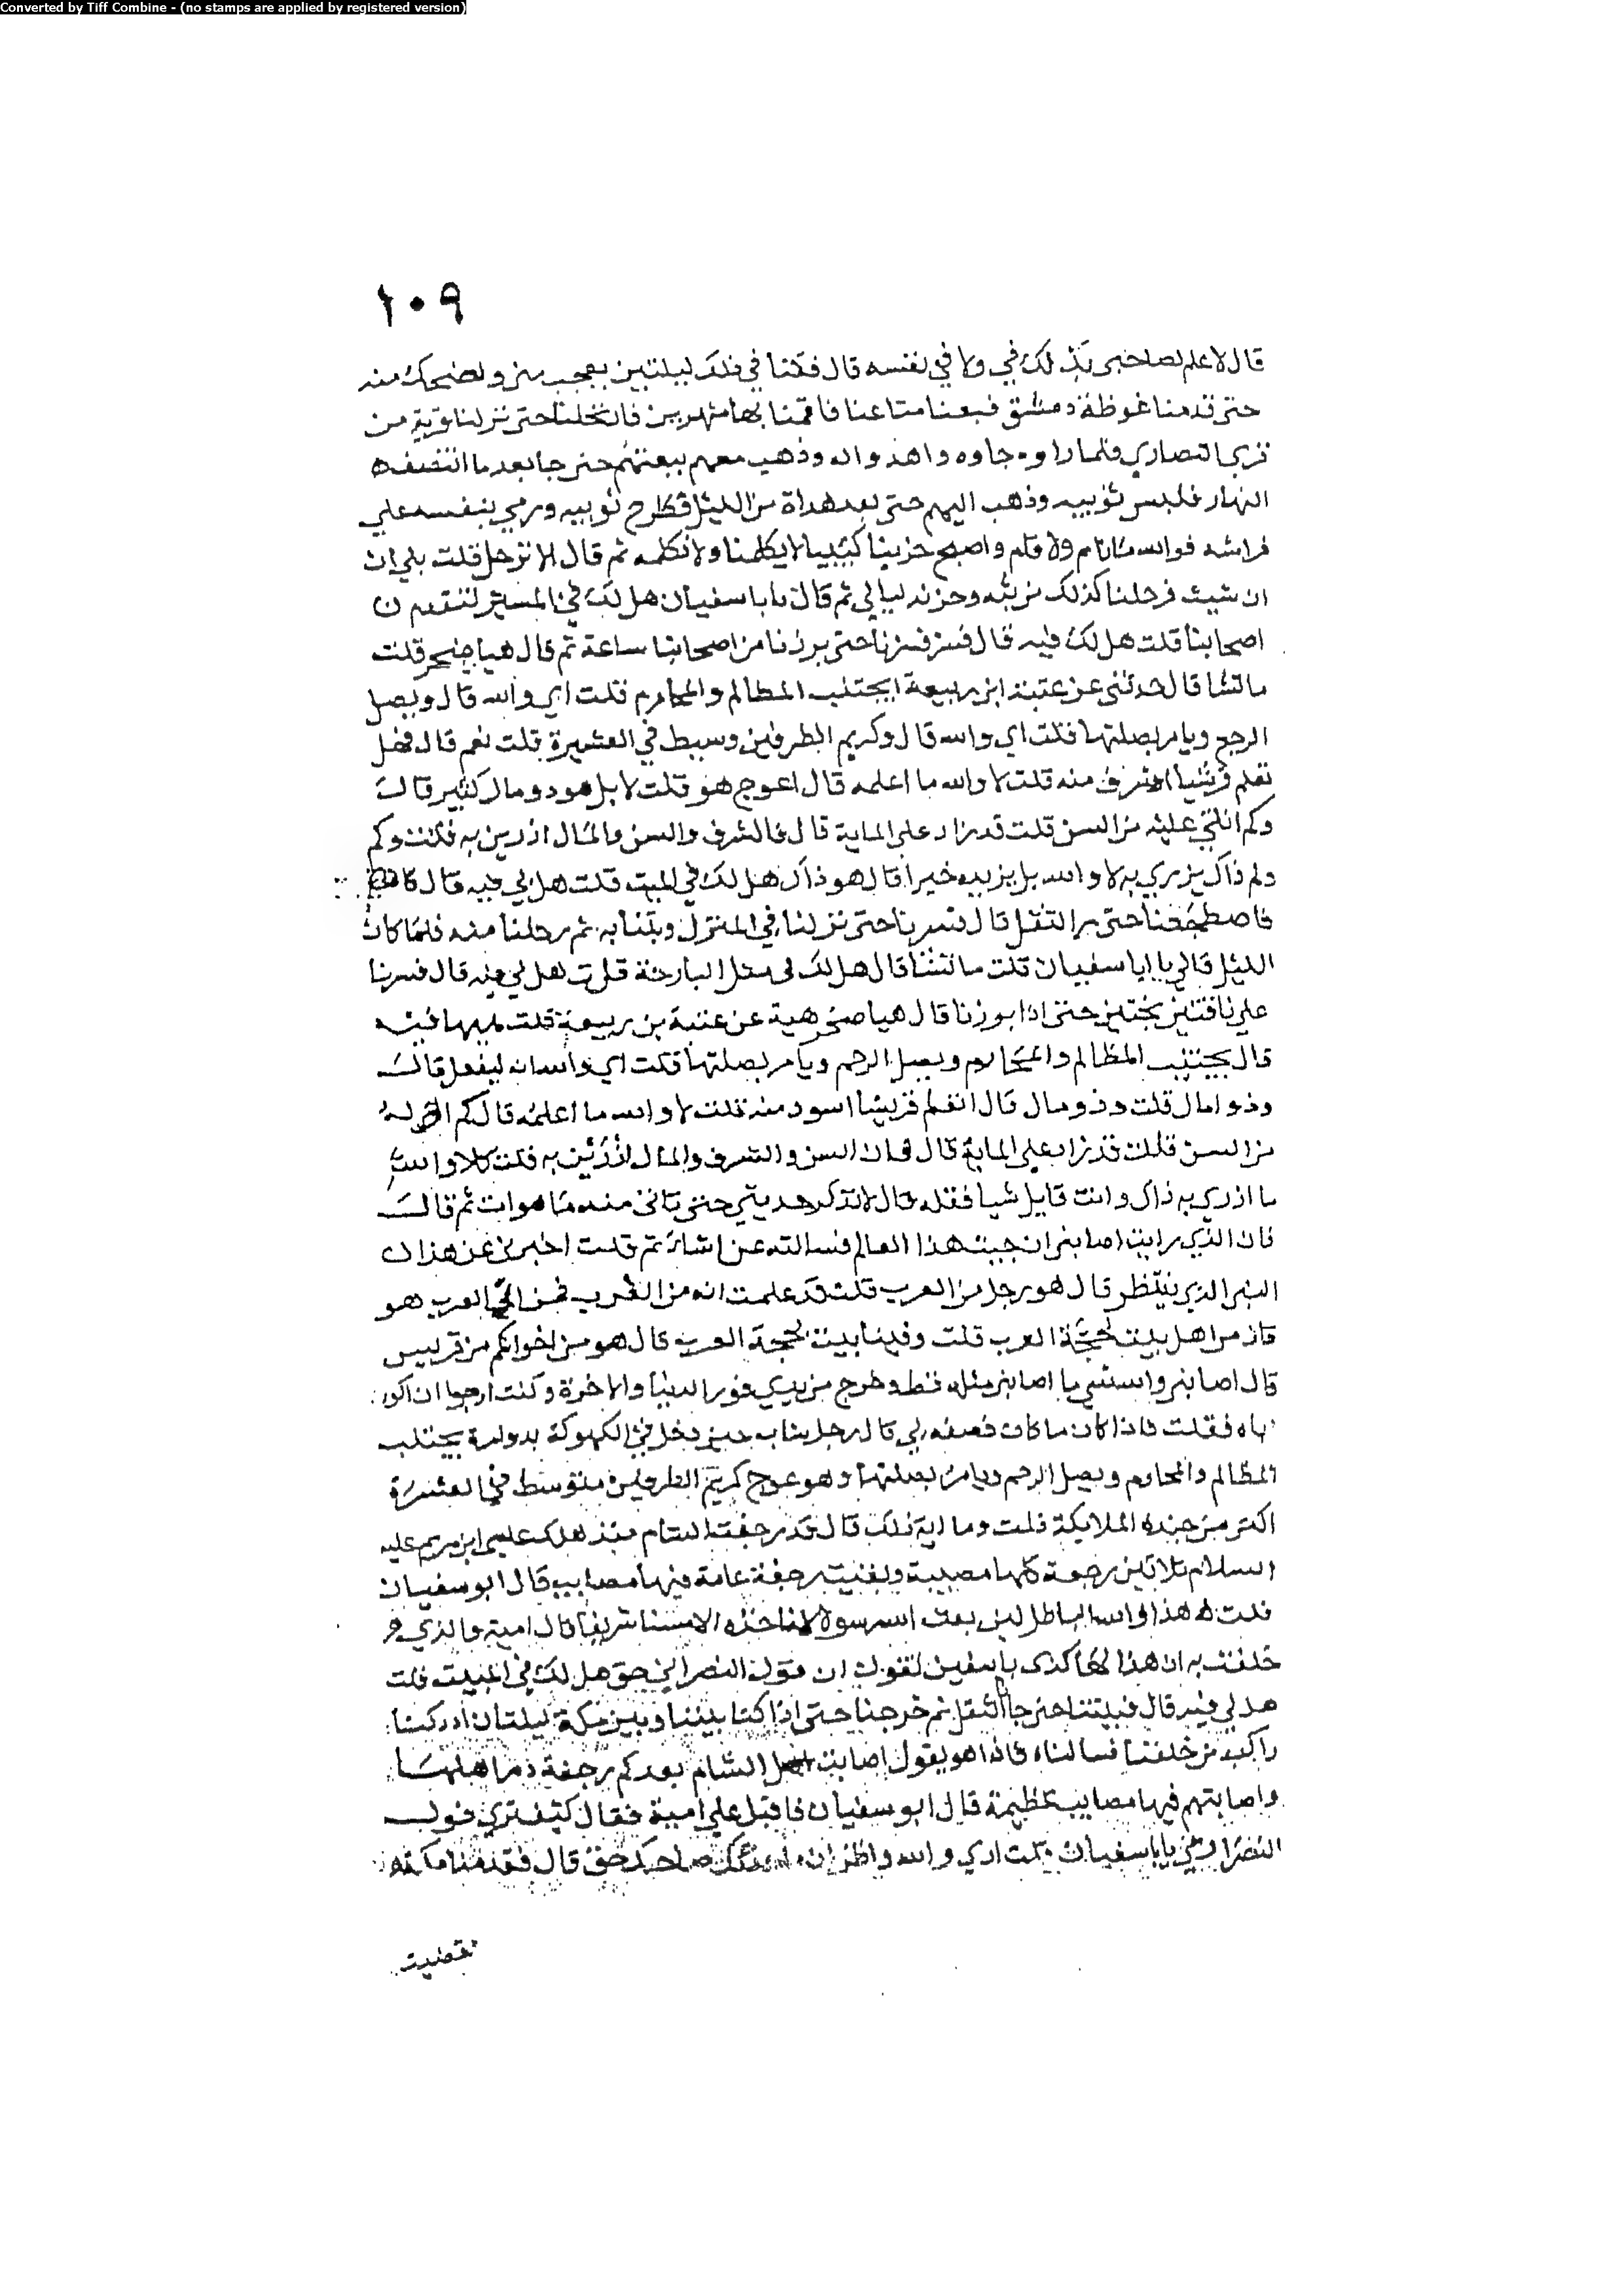 Converted by Tiff Combine - (no stamps are applied by registered version)
١٠٩
قال لا علم لصاحبي بذلك في ولا في نفسه قال فكنا في ذلك ليلتين يعجب مني ونضحك منه
حتى قدمنا غوطة دمشق فبعنا متاعنا فاقمنا بها شهرين فارتحلنا حتى نزلنا قرية من
قرى النصارى فلما راوه جاوه واهدوا له وذهب معهم بيعتهم حتى جا بعد ما انتصف
النهار فلبس ثوبيه وذهب اليهم حتى بعد هداة من الليل فطرح ثوبيه ورمي بنفسه علي
فراشه فوالله ما نام ولا قام واصبح حزينا كئيبا لا يكلمنا ولا نكلمه ثم قال الا ترحل قلت بلي ان
ان شيت فرحلنا كذلك من بثه وحزنه ليالي ثم قال يابا سفيان هل لك في المسير لنتقدم
اصحابنا قلت هل لك فيه قال فسرنا حتى برزنا من اصحابنا ساعة ثم قال هيا صخر قلت
ما تشا قال حدثني عن عتبة ابن ربيعة ايجتنب المظالم والمحارم قلت اي والله قال ويصل
الرحم ويامر بصلتها قلت اي والله قال وكريم الطرفين وسيط في العشيرة قلت نعم قال فهل
تعلم قرشيا اشرف منه قلت لا والله ما اعلمه قال اعوج هو قلت لا بل هو ذو مال كثير قال
وكم اتي عليه من السن قلت قد زاد علي الماية قال فالشرف والسن والمال ازرين به قلت وكم
ولم ذاك يزري به لا والله بل يزيده خيرا قال هو ذاك هل لك في المبيت قلت هل لي فيه قال
فاضطجعنا حتى مر الثقل قال فسرنا حتى نزلنا في المنزل وبتنا به ثم رحلنا منه فلما كان
الليل قال لي يابا سفيان قلت ما تشا قال هل لك في مثل البارحة قلت هل لي فيه قال فسرنا
علي ناقتين بختيتين حتى اذا برزنا قال هيا صخر هيه عن عتبة بن ربيعة قلت هيها فيه
قال يجتنب المظالم والمحارم ويصل الرحم ويامر بصلتها قلت اي والله انه ليفعل قال
وذو امال قلت وذو مال قال اتعلم قرشيا اسود منه قلت لا والله ما اعلمه قال كم اتى له
من السن قلت قد زاد علي الماية قال فان السن والشرف والمال ازرين به قلت كلا والله
ما ازري به ذاك وانت قايل شيا فقله قال لا تذكر حديثي حتى ياتي منه ما هو ات ثم قال
فان الذي رايت اصابني اني جيت هذا العالم فسالته عن اشيا ثم قلت اخبرني عن هذا
النبي الذي ينتظر قال هو رجل من العرب قلت قد علمت انه من العرب فمن اي العرب هو
قال من اهل بيت تحجه العرب قلت وفينا بيت تحجه العرب قال هو من اخوانكم من قريش
قال اصابني والله شي ما اصابني مثله قط وخرج من يدي فوز الدنيا والاخرة وكنت ارجوا ان اكون
اياه فقلت فاذا كان ما كان فصفه لي قال رجل شاب حين دخل في الكهولة بدو امره يجتنب
المظالم والمحارم ويصل الرحم ويامر بصلتها وهو عوج كريم الطرفين متوسط في العشيرة
اكثر من جنده الملايكة قلت وما اية ذلك قال قد رجفت الشام منذ هلك عيسى ابن مريم عليه
السلام ثلاثين رجفة كلها مصيبة وبقيت رجفة عامة فيها مصايب قال ابو سفيان
قلت هذا والله الباطل لين بعث الله رسولا لا ياخذه الا مسنا شريفا قال امية والذي
حلفت به ان هذا لهكذى يابا سفين تقول ان قول النصراني حق هل لك في المبيت قلت
هل لي فيه قال فبتنا حتى جا الثقل ثم خرجنا حتى اذا كنا بيننا وبين مكة ليلتان ادركنا
راكب من خلفنا فسالناه فاذا هو يقول اصابت اهل الشام بعدكم رجفة دمر اهلها
واصابتهم فيها مصايب عظيمة قال ابو سفيان فاقبل علي امية فقال كيف ترى قول
النصراني يابا سفيان قلت ارى والله واظن ان ما حدثك صاحبك حق قال فقدمنا مكة
فقضيت